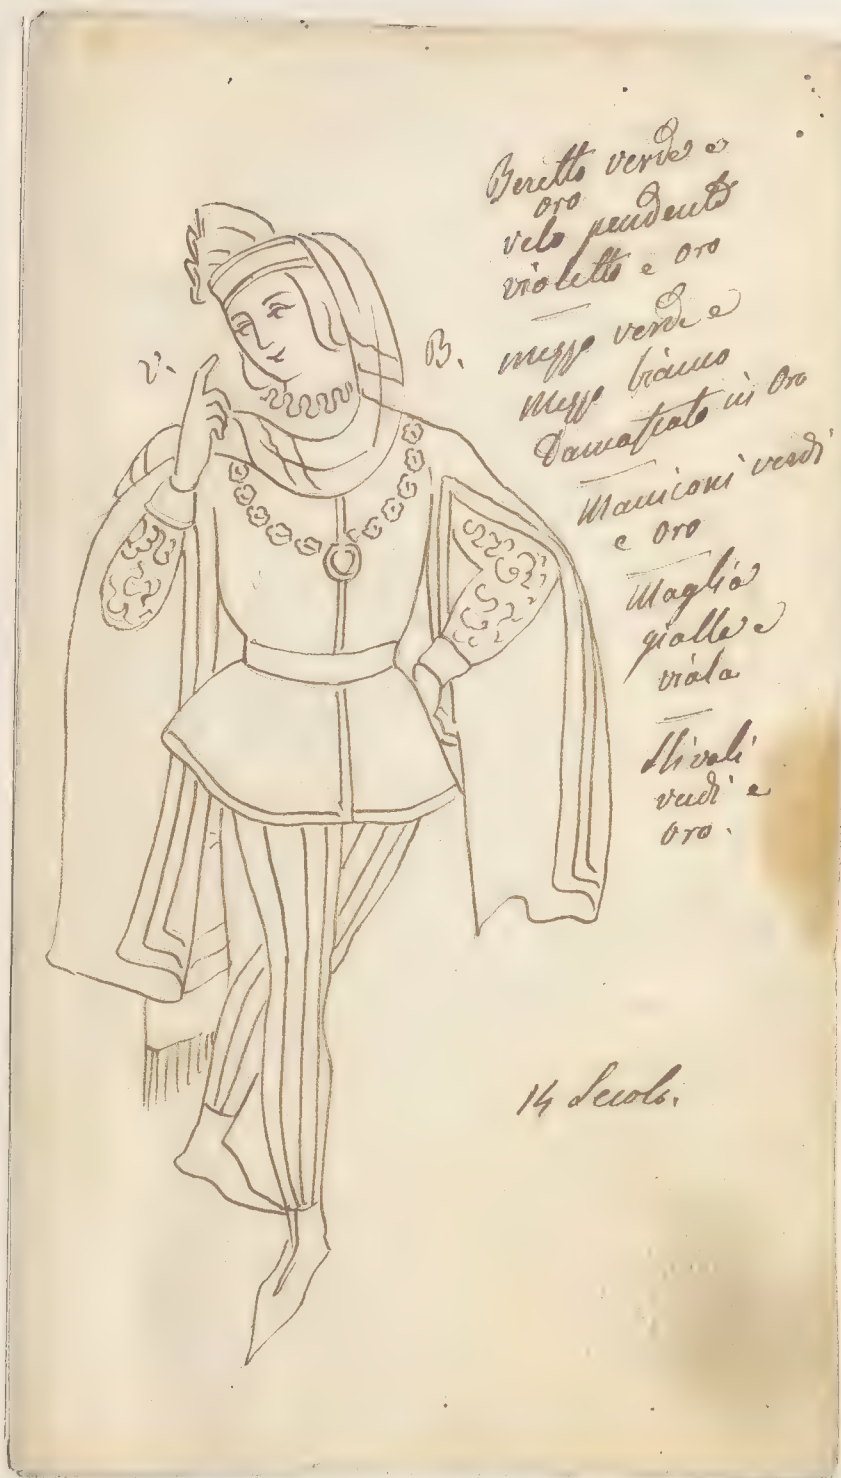 Beretto verde e
oro
velo pendente
violetto e oro
V.
B.
mezzo verde e
mezzo bianco
Damascato in oro
Maniconi verdi
e oro
Maglia
gialla e
viola
Stivali
verdi e
oro.
14 Secolo.